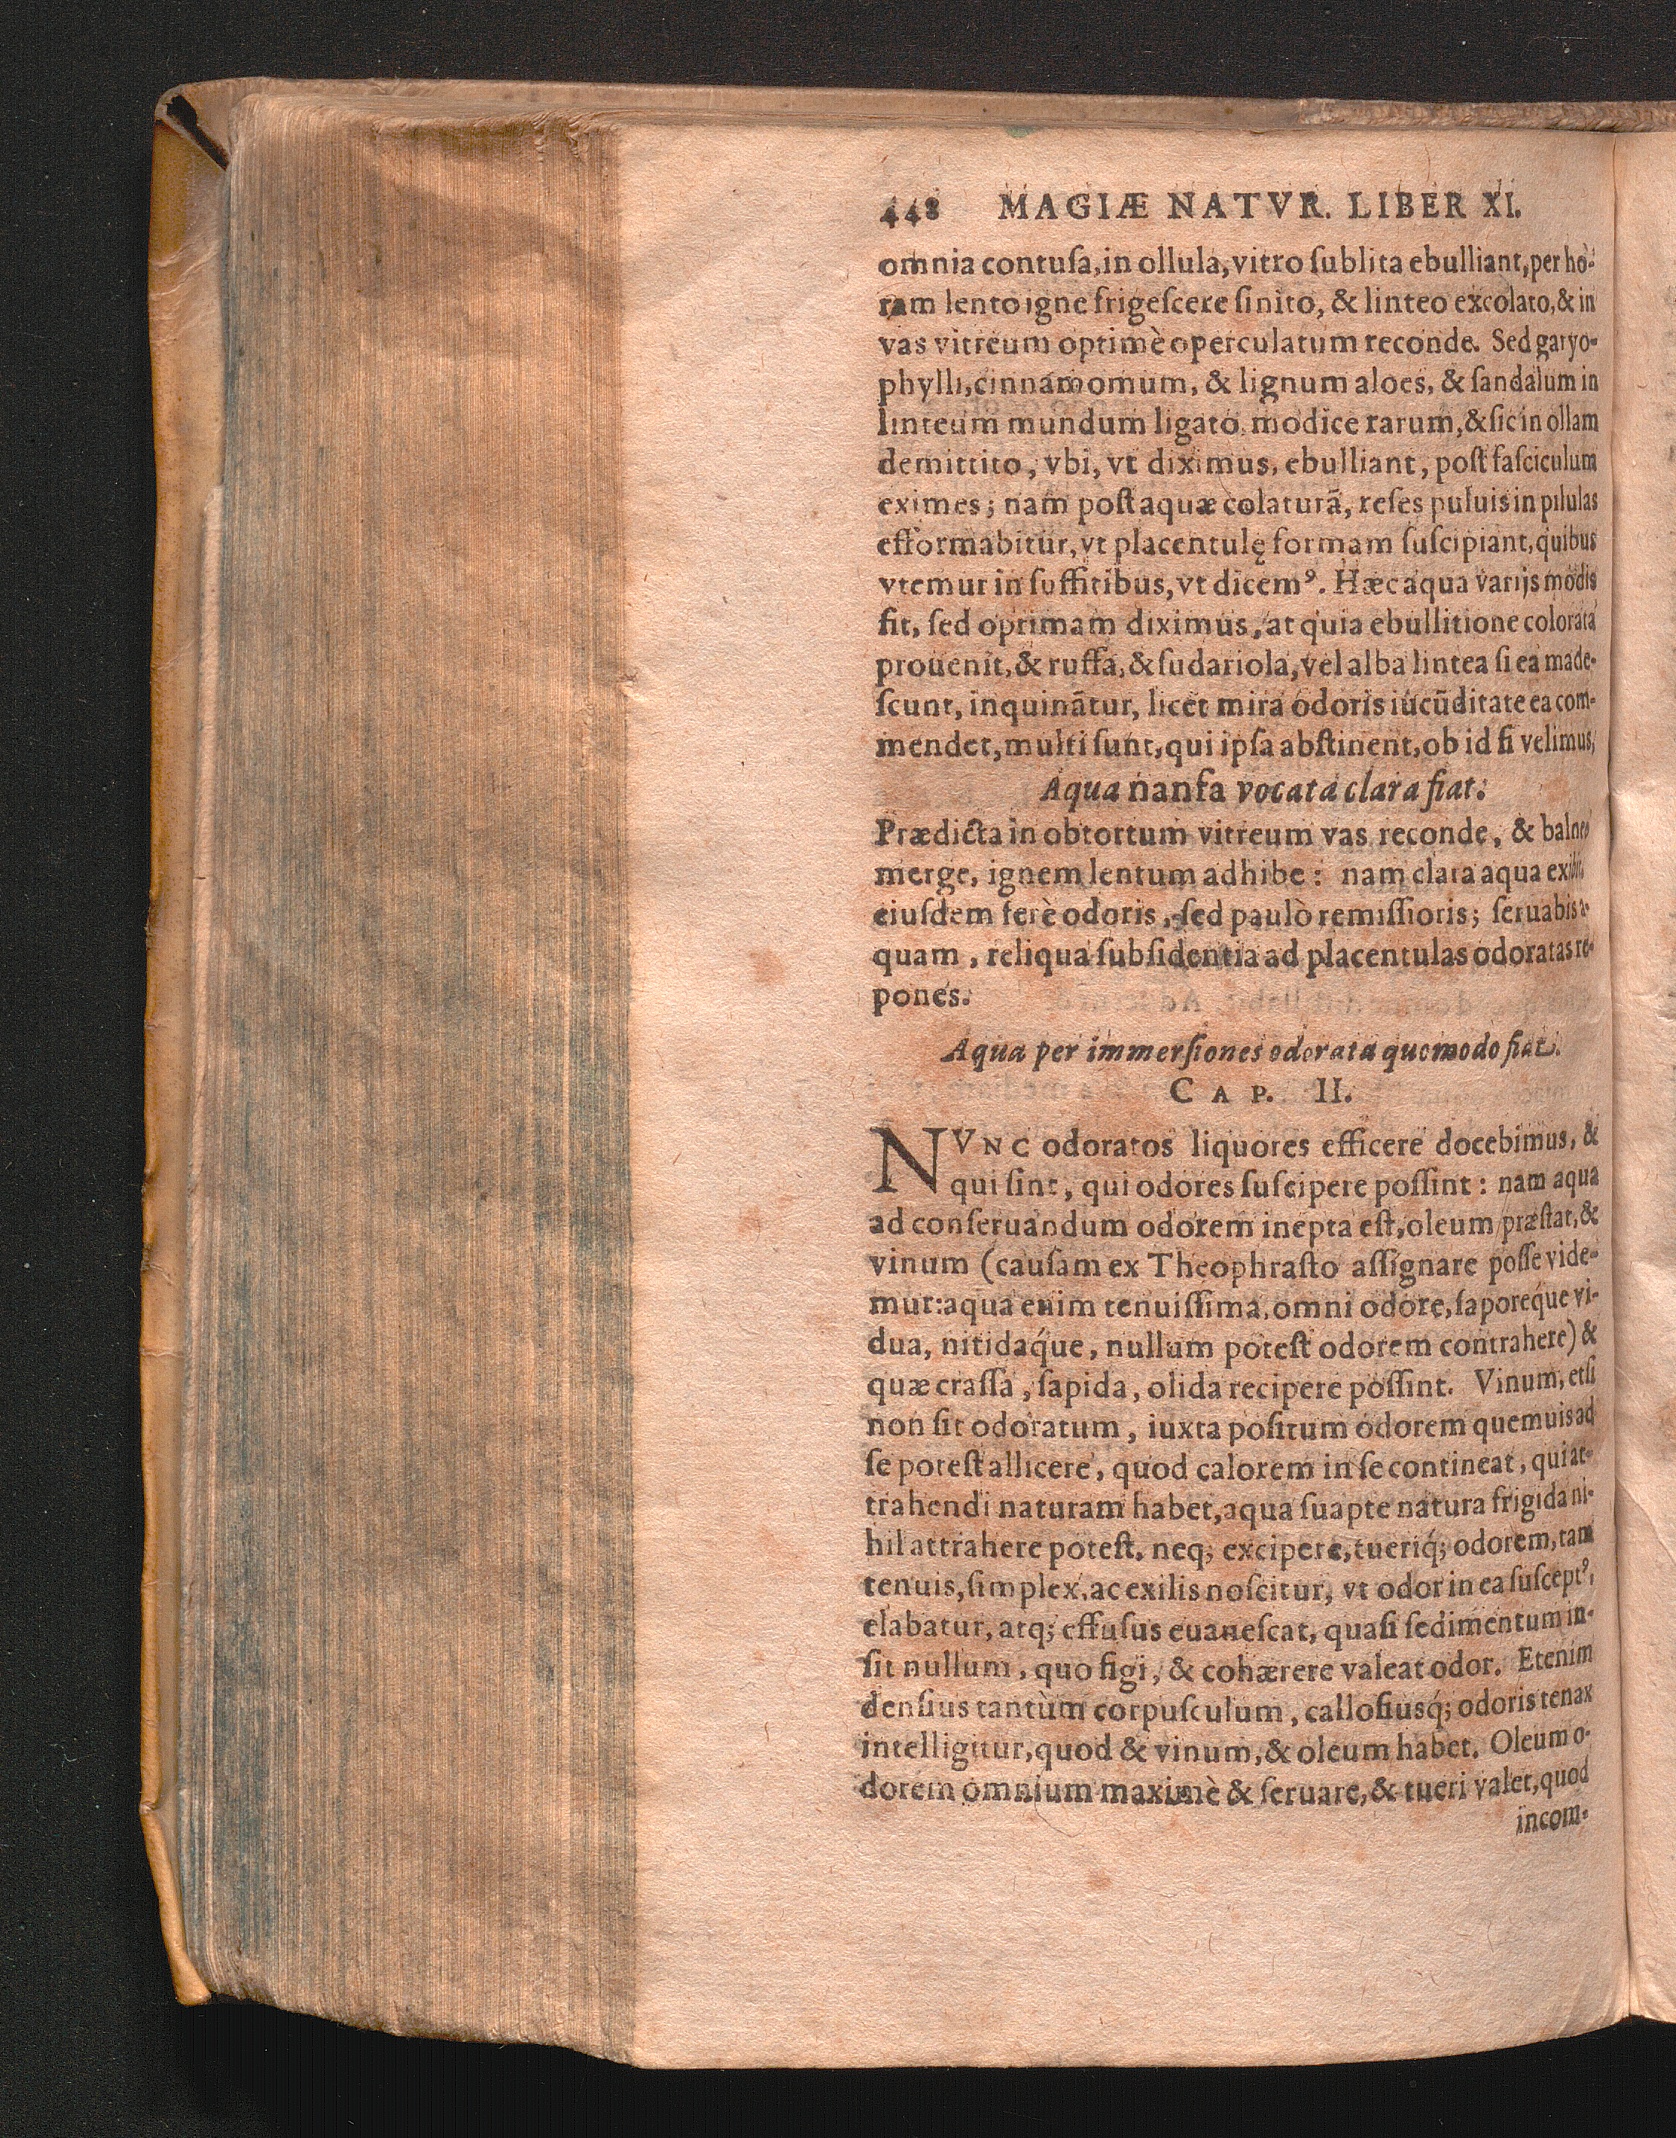 448 MAGIÆ NATVR. LIBER XI.
omnia contuſa, in ollula, vitro ſublita ebulliant, per hò-
ram lento igne frigeſcere ſinito, & linteo excolato, & in
vas vitreum optimè operculatum reconde. Sed garyo-
phylli, cinnamomum, & lignum aloes, & ſandalum in
linteum mundum ligato modice rarum, & ſic in ollam
demittito, vbi, vt diximus, ebulliant, poſt faſciculum
eximes; nam poſt aquæ colaturã, reſes puluis in pilulas
efformabitur, vt placentulę formam ſuſcipiant, quibus
vtemur in ſuffitibus, vt dicemꝰ. Hæc aqua varijs modis
fit, ſed optimam diximus, at quia ebullitione colorata
prouenit, & ruffa, & ſudariola, vel alba lintea ſi ea made-
ſcunt, inquinãtur, licet mira odoris iucũditate ea com-
mendet, multi ſunt, qui ipſa abſtinent, ob id ſi velimus,
Aqua nanfa vocata clara fiat.
Prædicta in obtortum vitreum vas reconde, & balneo
merge, ignem lentum adhibe: nam clara aqua exibit,
eiuſdem ferè odoris, ſed paulò remiſſioris; ſeruabis a-
quam, reliqua ſubſidentia ad placentulas odoratas re-
pones.
Aqua per immerſiones odorata quomodo fiat.
CAP. II.
NVNC odoratos liquores efficere docebimus, &
qui ſint, qui odores ſuſcipere poſſint: nam aqua
ad conſeruandum odorem inepta eſt, oleum præſtat, &
vinum (cauſam ex Theophraſto aſſignare poſſe vide-
mur: aqua enim tenuiſſima, omni odore, ſaporéque vi-
dua, nitidáque, nullum poteſt odorem contrahere) &
quæ craſſa, ſapida, olida recipere poſſint. Vinum, etſi
non ſit odoratum, iuxta poſitum odorem quemuis ad
ſe poteſt allicere, quod calorem in ſe contineat, qui at-
trahendi naturam habet, aqua ſuapte natura frigida ni-
hil attrahere poteſt, neq; excipere, tueriq́; odorem, tam
tenuis, ſimplex, ac exilis noſcitur, vt odor in ea ſuſceptꝰ,
elabatur, atq; effuſus euaneſcat, quaſi ſedimentum in-
ſit nullum, quo figi, & cohærere valeat odor. Etenim
denſius tantùm corpuſculum, calloſiusq́; odoris tenax
intelligitur, quod & vinum, & oleum habet. Oleum o-
dorem omnium maximè & ſeruare, & tueri valet, quod
incom-